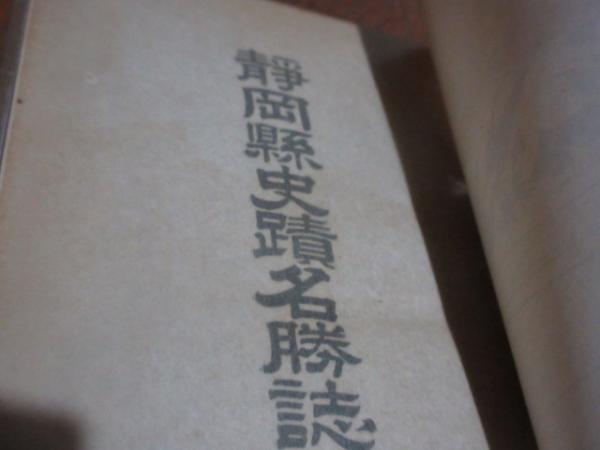 靜岡縣史蹟名勝誌